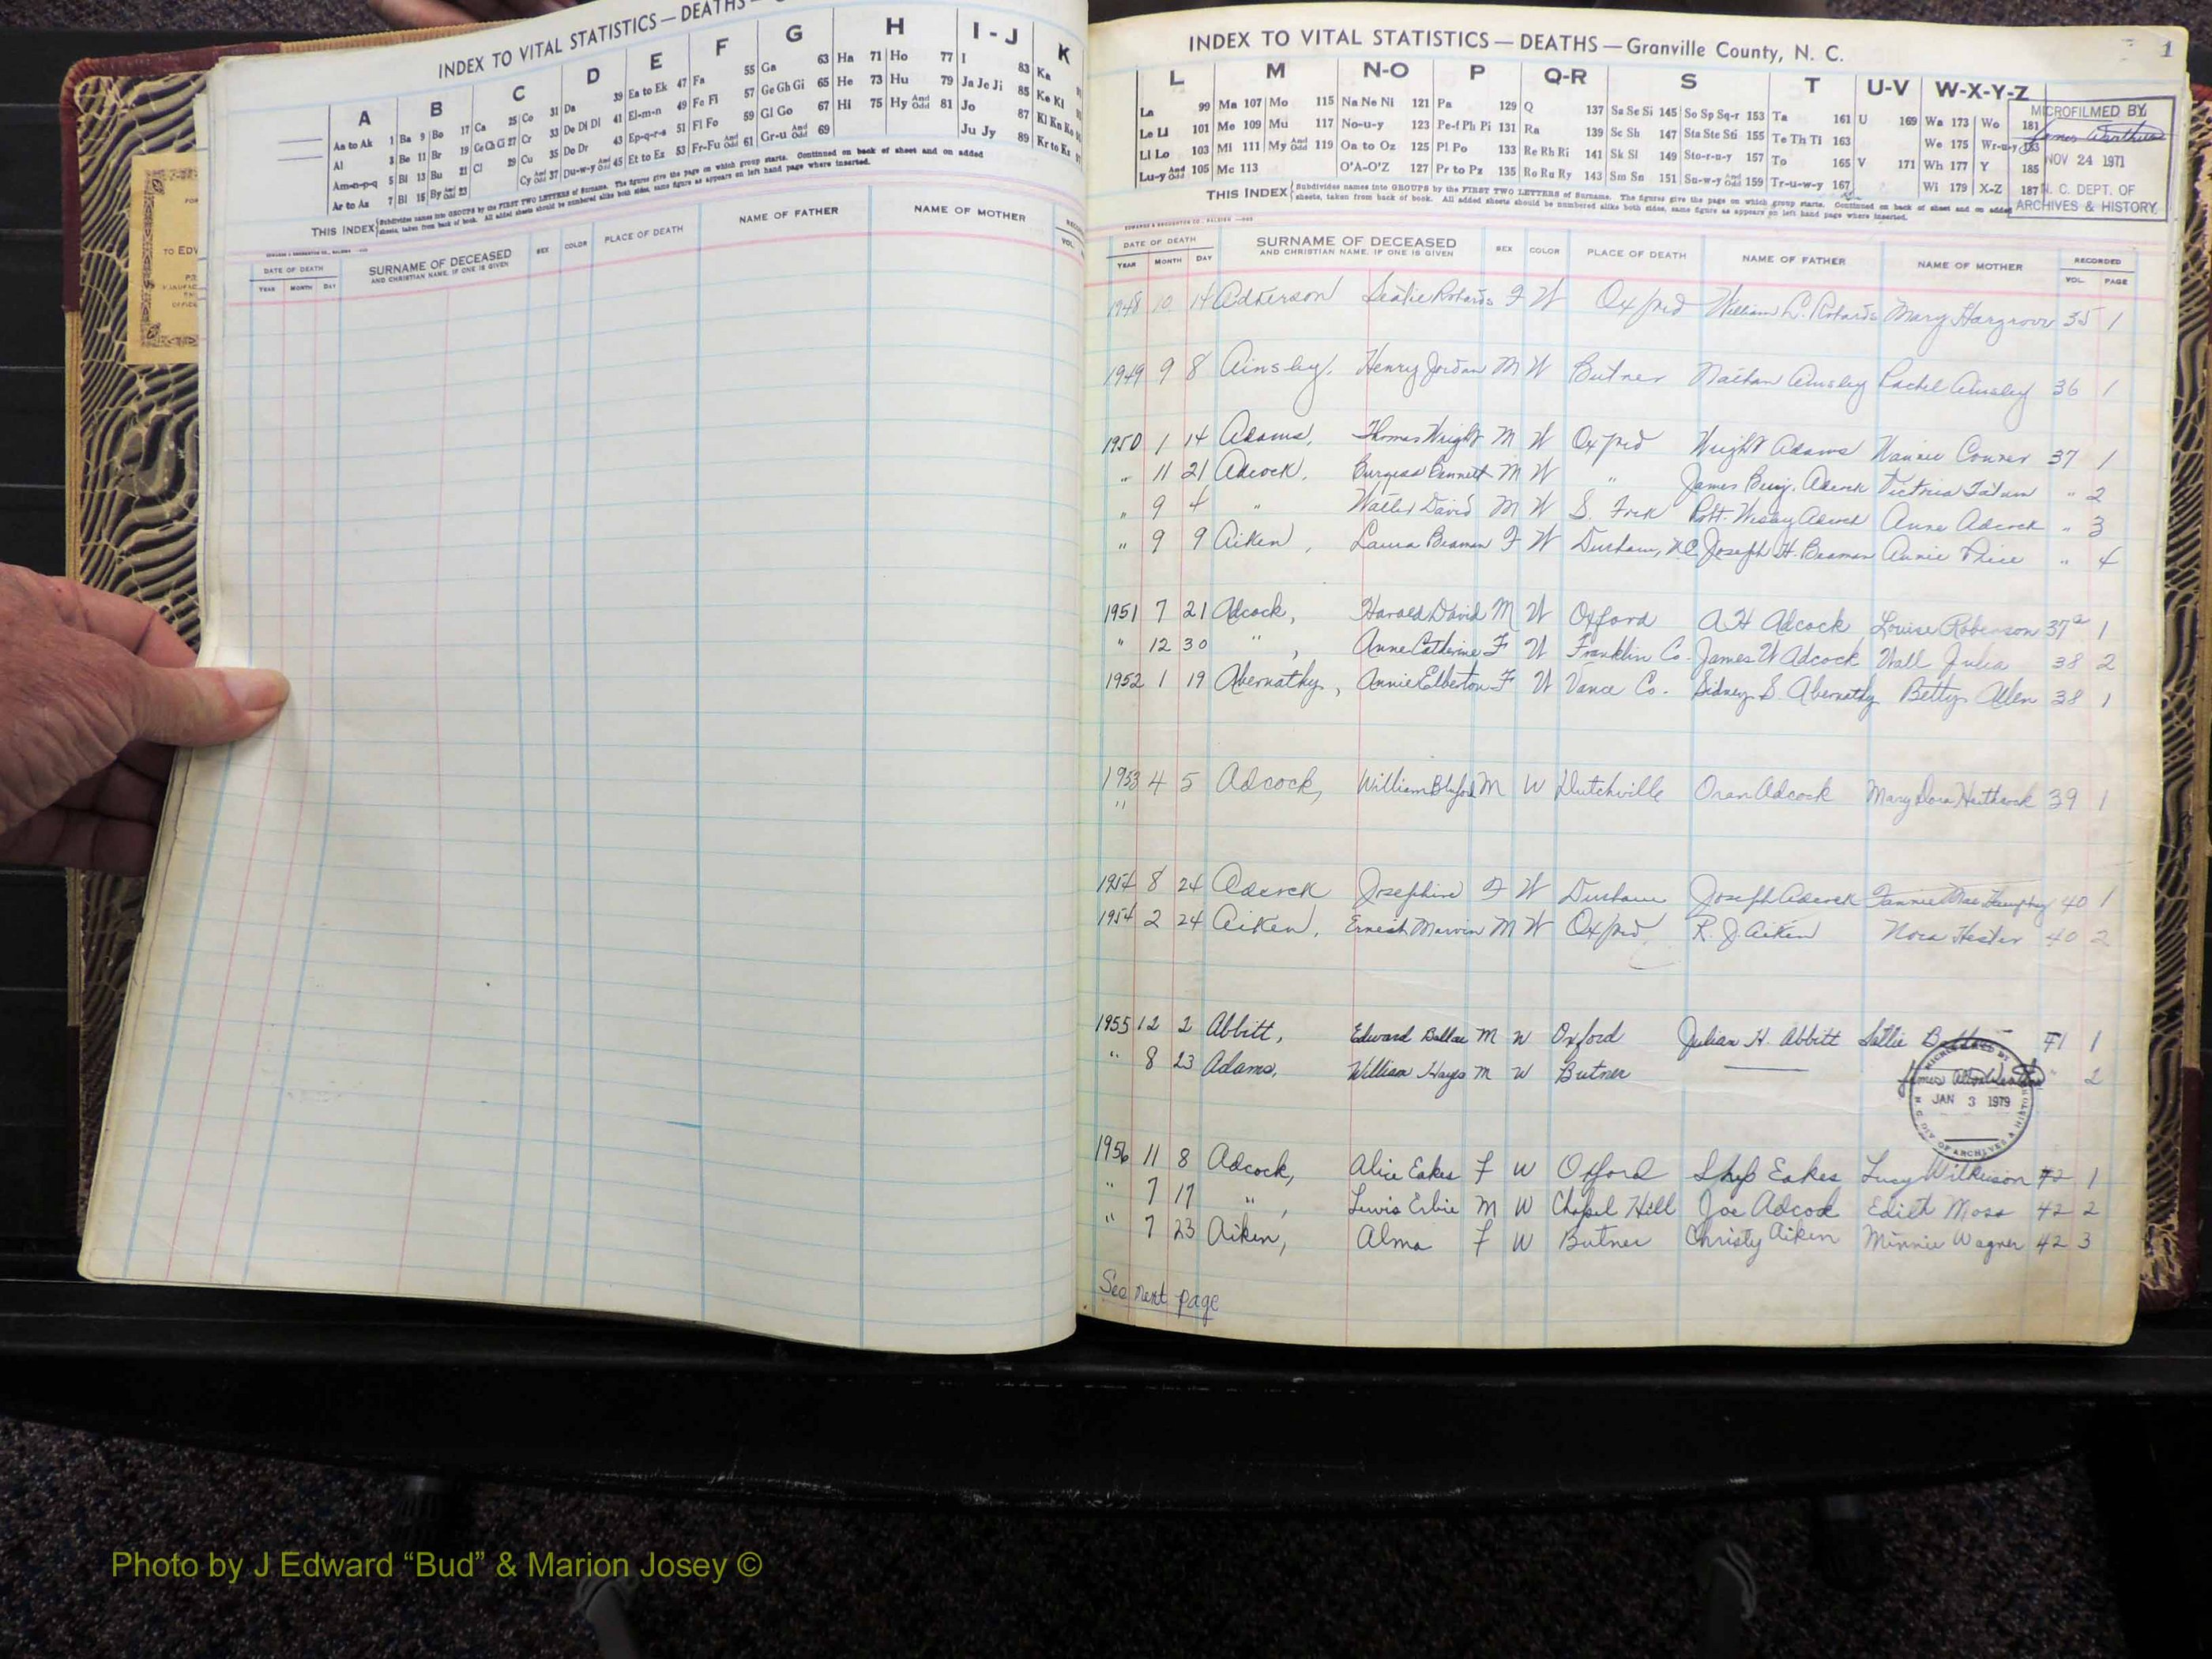 INDEX TO VITAL STATISTICS — DEATHS —
A B C D E F G H I - J K
Aa to Ak 1 Ba 9 Bo 17 Ca 25 Co 31 Da 39 Ea to Ek 47 Fa 55 Ga 63 Ha 71 Ho 77 I 83 Ka
Al 3 Be 11 Br 19 Ce Ch Ci 27 Cr 33 De Di Dl 41 El-m-n 49 Fe Fi 57 Ge Gh Gi 65 He 73 Hu 79 Ja Je Ji 85 Ke Kl
Am-n-p-q 5 Bi 13 Bu 21 Cl 29 Cu 35 Do Dr 43 Ep-q-r-s 51 Fl Fo 59 Gl Go 67 Hi 75 Hy And Odd 81 Jo 87 Kl Kn Ko
Ar to Az 7 Bl 15 By And Odd 23 Cy And Odd 37 Du-w-y And Odd 45 Et to Ez 53 Fr-Fu And Odd 61 Gr-u And Odd 69 Ju Jy 89 Kr to Kz
THIS INDEX Subdivides names into GROUPS by the FIRST TWO LETTERS of Surname. The figures give the page on which group starts. Continued on back of sheet and on added
sheets, taken from back of book. All added sheets should be numbered alike both sides, same figure as appears on left hand page where inserted.
DATE OF DEATH SURNAME OF DECEASED SEX COLOR PLACE OF DEATH NAME OF FATHER NAME OF MOTHER
YEAR MONTH DAY AND CHRISTIAN NAME, IF ONE IS GIVEN VOL.
INDEX TO VITAL STATISTICS — DEATHS — Granville County, N. C. 1
L M N-O P Q-R S T U-V W-X-Y-Z
La 99 Ma 107 Mo 115 Na Ne Ni 121 Pa 129 Q 137 Sa Se Si 145 So Sp Sq-r 153 Ta 161 U 169 Wa 173 Wo 181
Le Li 101 Me 109 Mu 117 No-u-y 123 Pe-f Ph Pi 131 Ra 139 Sc Sh 147 Sta Ste Sti 155 Te Th Ti 163 We 175 Wr-u-y 183
Ll Lo 103 Mi 111 My And Odd 119 Oa to Oz 125 Pl Po 133 Re Rh Ri 141 Sk Sl 149 Sto-r-u-y 157 To 165 V 171 Wh 177 Y 185
Lu-y And Odd 105 Mc 113 O'A-O'Z 127 Pr to Pz 135 Ro Ru Ry 143 Sm Sn 151 Su-w-y And Odd 159 Tr-u-w-y 167 Wi 179 X-Z 187
MICROFILMED BY
NOV 24 1971
N. C. DEPT. OF
ARCHIVES & HISTORY
THIS INDEX Subdivides names into GROUPS by the FIRST TWO LETTERS of Surname. The figures give the page on which group starts. Continued on back of sheet and on added
sheets, taken from back of book. All added sheets should be numbered alike both sides, same figure as appears on left hand page where inserted.
DATE OF DEATH SURNAME OF DECEASED SEX COLOR PLACE OF DEATH NAME OF FATHER NAME OF MOTHER RECORDED
YEAR MONTH DAY AND CHRISTIAN NAME, IF ONE IS GIVEN VOL. PAGE
1948 10 14 Adkerson F W Oxford William L. Mary Hargrove 35 1
1949 9 8 Ainsley, Henry Jordan M W Butner Nathan Ainsley Rachel Ainsley 36 1
1950 1 14 Adams, Thomas Wright M W Oxford Wright Adams Nannie Conner 37 1
" 11 21 Adcock, Burgess Bennett M W " James Benj. Adcock Victoria Tatum " 2
" 9 4 " Walter David M W S. Fork Robt. Wesley Adcock Anne Adcock " 3
" 9 9 Aiken, Laura Beaman F W Durham, N.C. Joseph H. Beaman Annie Price " 4
1951 7 21 Adcock, Harold David M W Oxford A H Adcock Louise Roberson 37a 1
" 12 30 " , Anne Catherine F W Franklin Co. James W Adcock Wall Julia 38 2
1952 1 19 Abernathy, Annie Elberton F W Vance Co. Sidney S. Abernathy Betty Allen 38 1
1953 4 5 Adcock, William Bluford M W Dutchville Oran Adcock Mary Dora 39 1
"
1954 8 24 Adcock Josephine F W Durham Joseph Adcock Fannie Mae 40 1
1954 2 24 Aiken, Ernest Marvin M W Oxford R. J. Aiken Nora Hester 40 2
1955 12 2 Abbitt, Edward Ballou M W Oxford Julian H. Abbitt Sallie 41 1
" 8 23 Adams, William Hays M W Butner — " 2
JAN 3 1979
1956 11 8 Adcock, Alice Eakes F W Oxford Shep Eakes Lucy Wilkinson 42 1
" 7 17 " , Lewis Erbie M W Chapel Hill Joe Adcock Edith Moss 42 2
" 7 23 Aiken, Alma F W Butner Christy Aiken Minnie Wagner 42 3
See next page
Photo by J Edward “Bud” & Marion Josey ©